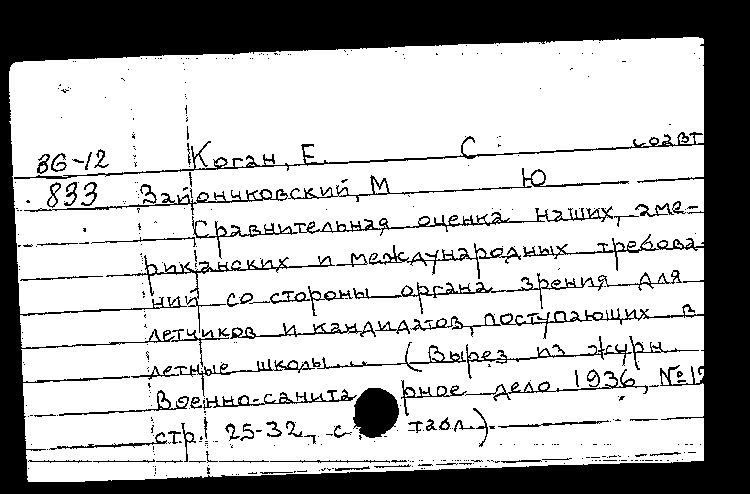 В6-12 Коган, Е. С соавт
833 Зайончковский, М Ю
Сравнительная оценка наших, аме-
риканских и международных требова-
ний со стороны органа зрения для
летчиков и кандидатов, поступающих в
летные школы... (Вырез из журн.
Военно-санитарное дело. 1936, №12
стр. 25-32, с табл.)